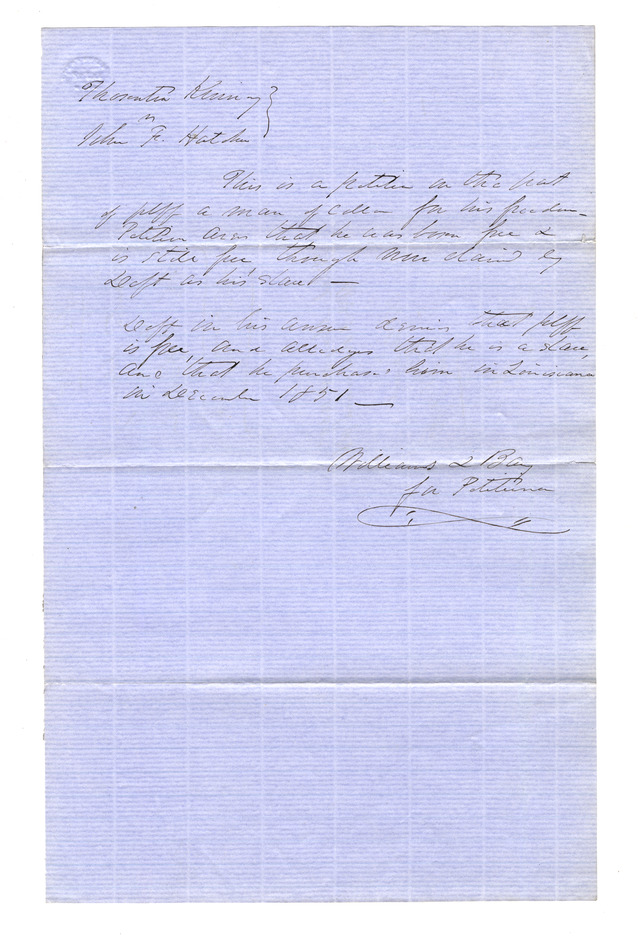 Thornton Kinney }
vs
John F. Hatcher
This is a petition on the part
of plff a man of Color for his freedom –
Petition avers that he was born free &
is still free though now claimed by
Deft as his slave —
Deft in his answer denies that plff
is free, and alledges that he is a slave,
and that he purchased him in Louisiana
in December 1851 —
Williams & Bay
for Petitioner